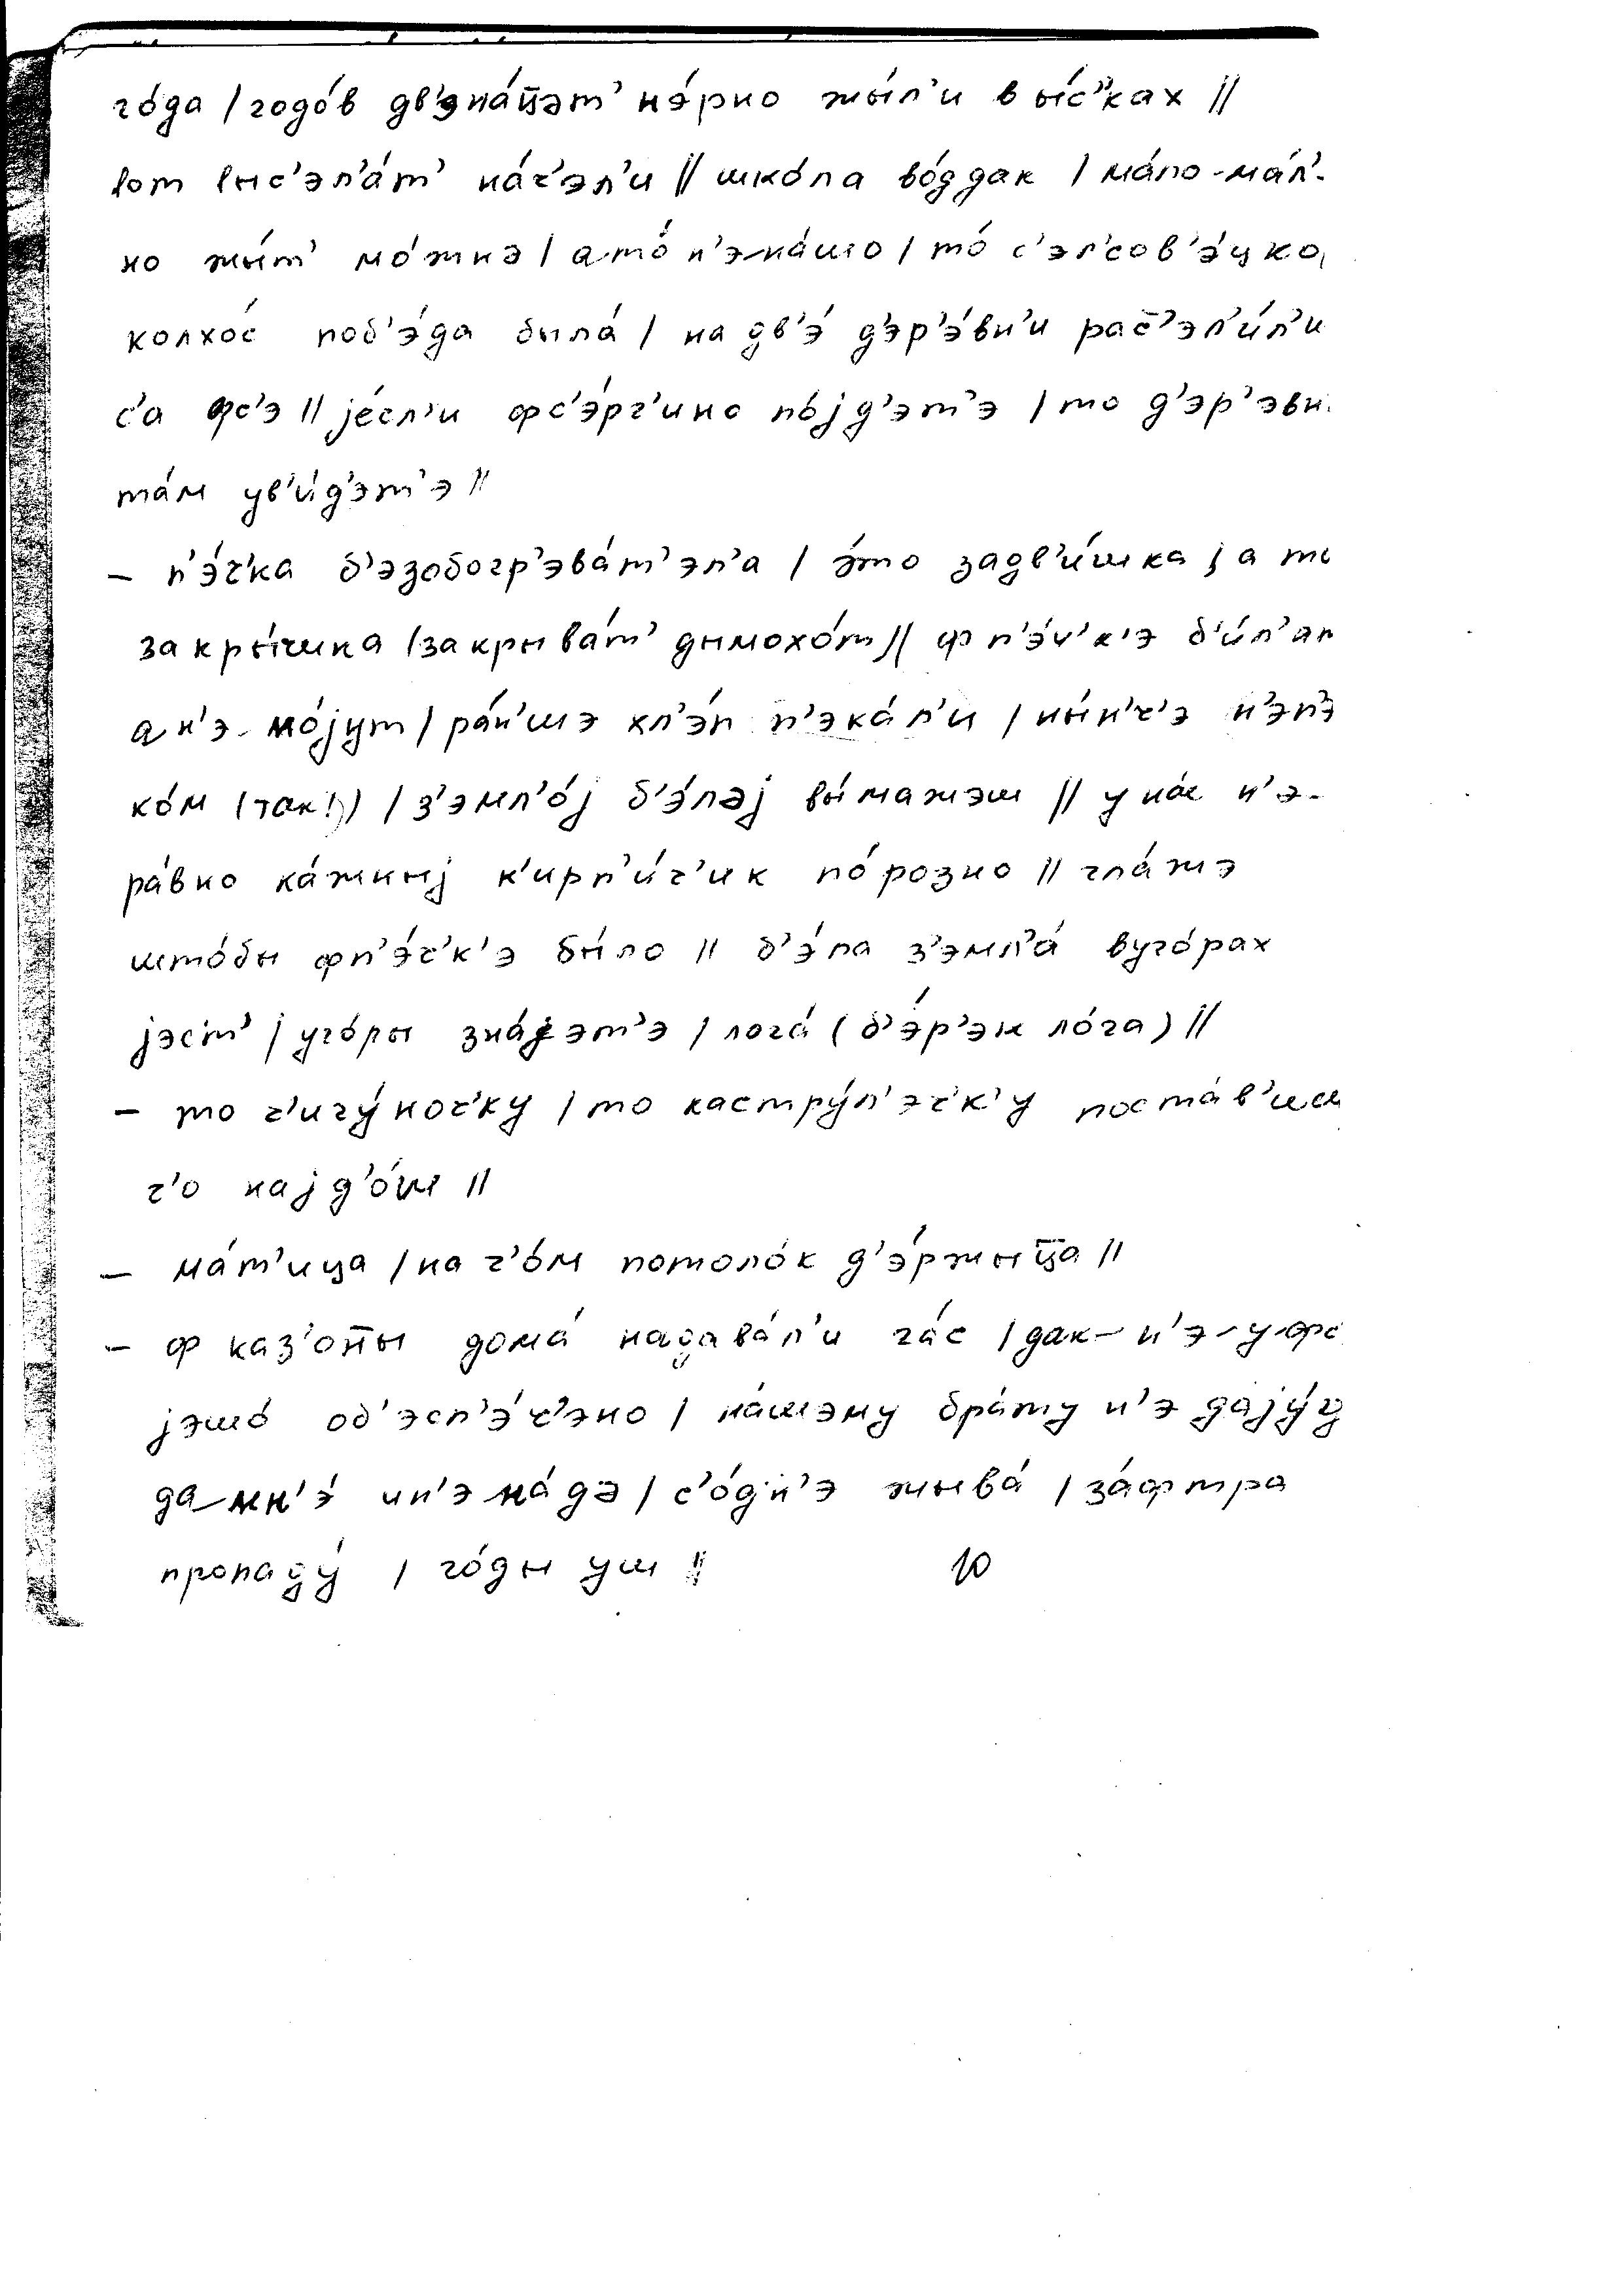 го́да / годо́в дв'эна́ц̄эт' нэ́рно жы́л'и в ы́с''ках //
вот выс'эл'а́т' на́ч'эл'и // шко́ла во́ддак / ма́ло-ма́л'-
но жы́т' мо́жнэ / а то́ н'э на́шо / то́ с'эл'сов'э́цко
колхо́с поб'э́да была́ / на дв'э́ д'эр'э́вн'и рас̄'эл'и́л'и
с'а фс'э // је́сл'и фс'э́рг'ино по́јд'эт'э / то д'эр'эвн
та́м ув'и́д'эт'э //
– п'э́ч'ка б'эзобогр'эва́т'эл'а / э́то задв'и́шка ј а то
закры́шка / закрыва́т' дымохо́т // ф п'э́ч'к'э б'и́л'ап
а н'э мо́јут / ра́н'шэ хл'э́п п'эка́л'и / ны́н'ч'э н'эп'э
ко́м (так!) / з'эмл'о́ј б'э́лэј вы́мажэш // у на́с н'э-
ра́вно ка́жныј к'ирп'и́ч'ик по́розно // гла́жэ
што́бы фп'э́ч'к'э бы́ло // б'э́ла з'эмл'а́ вуго́рах
јэст' / уго́ры зна́јэт'э / лога́ (б'э́р'эк ло́га) //
– то ч'игу́ноч'ку / то кастру́л'эч'к'у поста́в'иш
ч'о најд'о́ш //
– ма́т'ица / на ч'о́м потоло́к д'э́ржыц̄а //
– ф каз'от̄ы дома́ надава́л'и га́с / дак– н'э-у-фс
јэшо́ об'эсп'э́ч'эно / на́шэму бра́ту н'э дају́ц
да мн'э́ ин'э на́дэ / с'о́дн'э жыва́ / за́фтра
пропаду́ / го́ды уш //
10